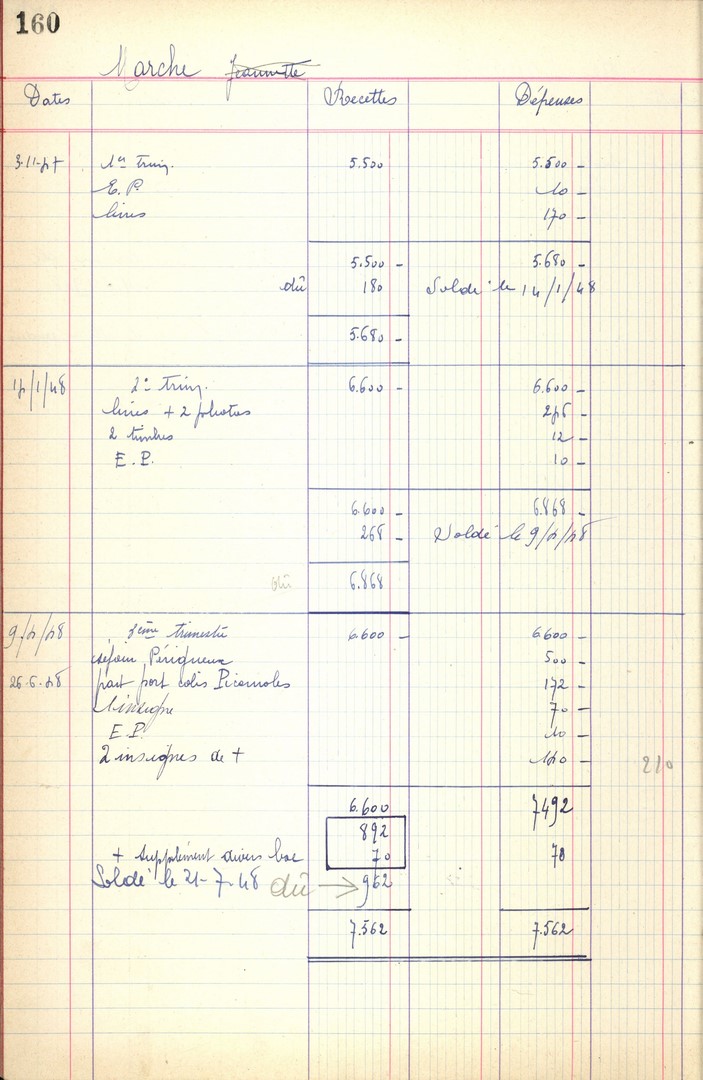 160
Marche Jeannette
Dates Recettes Dépenses
3-11-47 1er trim. 5.500 5.500 -
E.P. 10 -
livres 170 -
5.500 - 5.680 -
dû 180 Soldé le 14/1/48
5.680 -
14/1/48 2e trim. 6.600 - 6.600 -
livres + 2 photos 246 -
2 timbres 12 -
E.P. 10 -
6.600 - 6.868 -
268 - Soldé le 9/4/48
dû 6.868
9/4/48 3ème trimestre 6.600 - 6.600 -
séjour Périgueux 500 -
26-6-48 part port colis Picarnoles 172 -
1 insigne 70 -
E.P. 10 -
2 insignes de + 140 - 210
6.600 7492
892
+ supplément divers bac 70 70
Soldé le 21-7-48 dû → 962
7.562 7.562